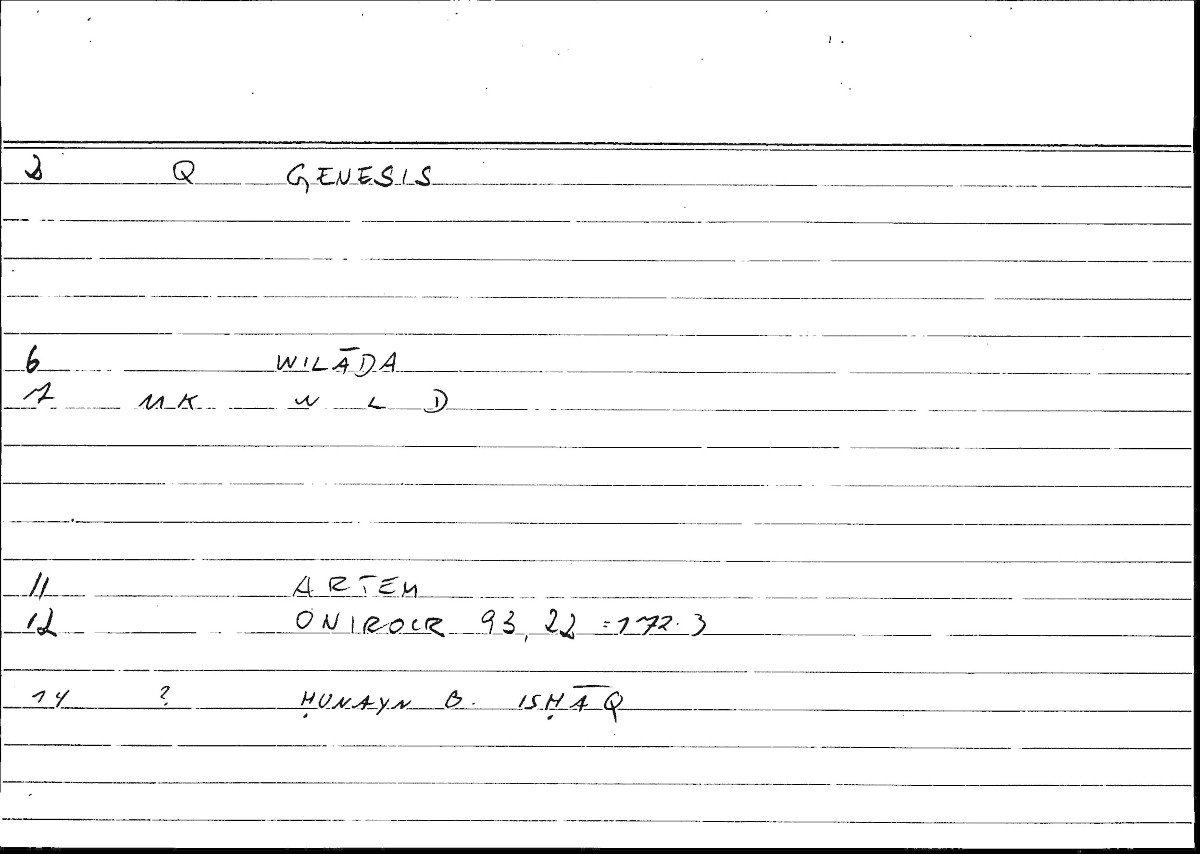 2 Q GENESIS
6 WILĀDA
7 MK W L D
11 ARTEM
12 ONIROCR 93, 22 = 172.3
14 ? ḤUNAYN B. ISḤĀQ